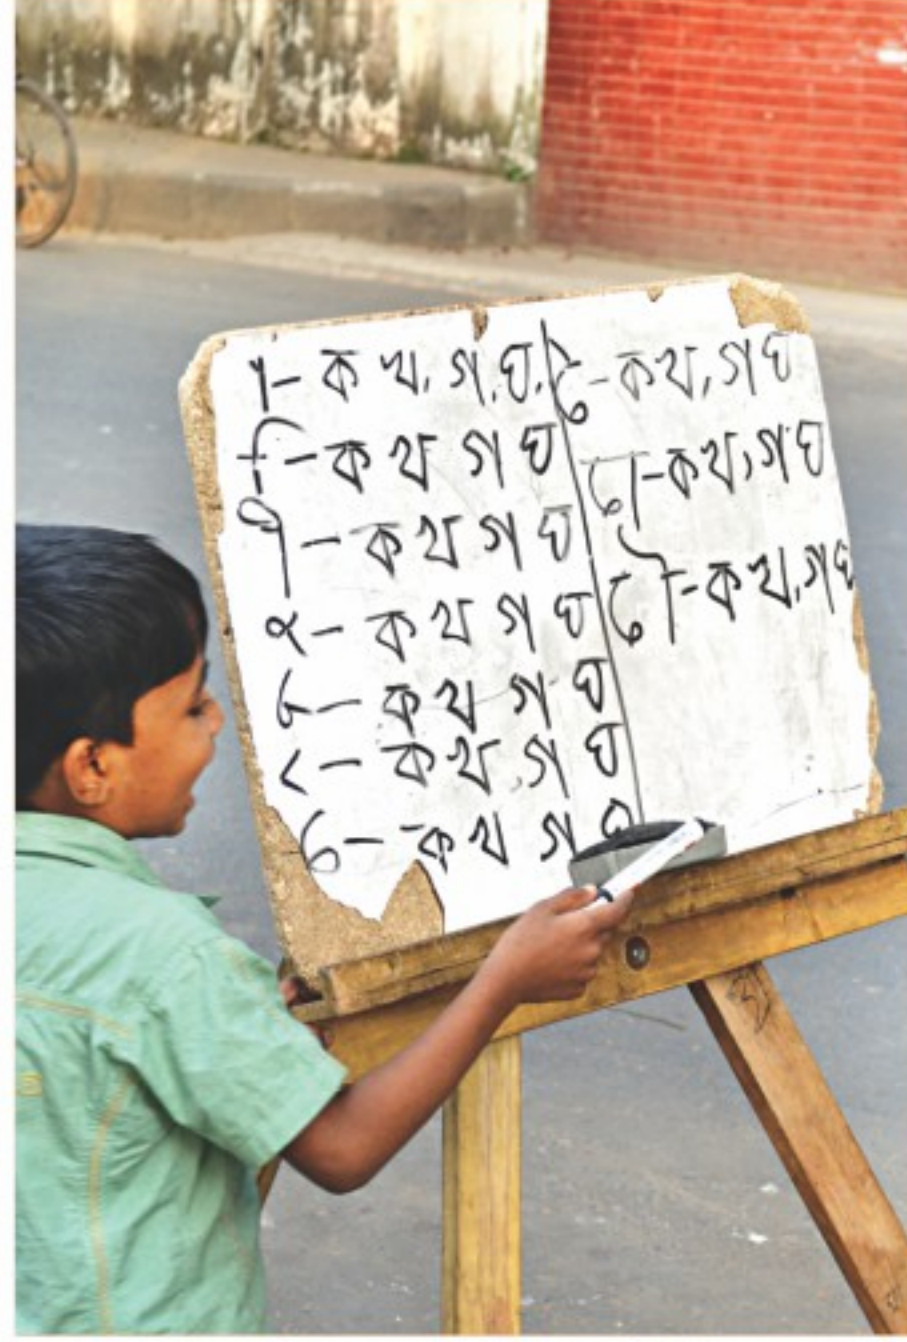 া- ক খ. গ. ঘ.
ি- ক খ গ ঘ
ী - ক খ গ ঘ
ু- ক খ গ ঘ
ূ- ক খ গ ঘ
ৃ- ক খ গ ঘ
ে- ক খ গ ঘ
ৈ- ক খ, গ ঘ
ো- ক খ, গ ঘ
ৌ- ক খ. গ ঘ